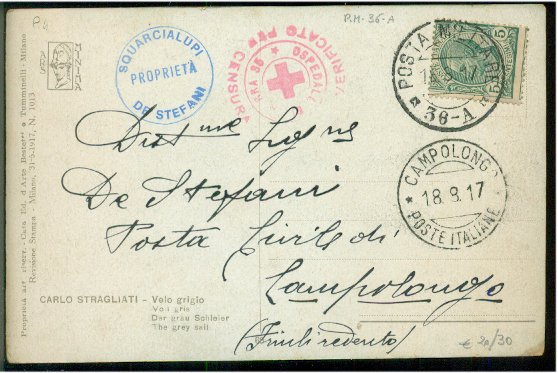 P4
P.M-36-A
SQUARCIALUPI
PROPRIETÀ
DE STEFANI
VERIFICATO PER CENSURA
OSPEDALE
36
POSTA MILITARE
17
36-A
5
CAMPOLONGO
18.8.17
POSTE ITALIANE
ARS
MINIMA
Proprietà art. riserv. - Casa Ed. d'Arte Bestetti e Tumminelli - Milano
Revisione Stampa - Milano, 31-5-1917, N. 1013
Dist me Sig na
De Stefani
Posta Civile di
Campolongo
(Friuli redento)
CARLO STRAGLIATI - Velo grigio
Voil gris
Der grau Schleier
The grey sail
€ 20/30